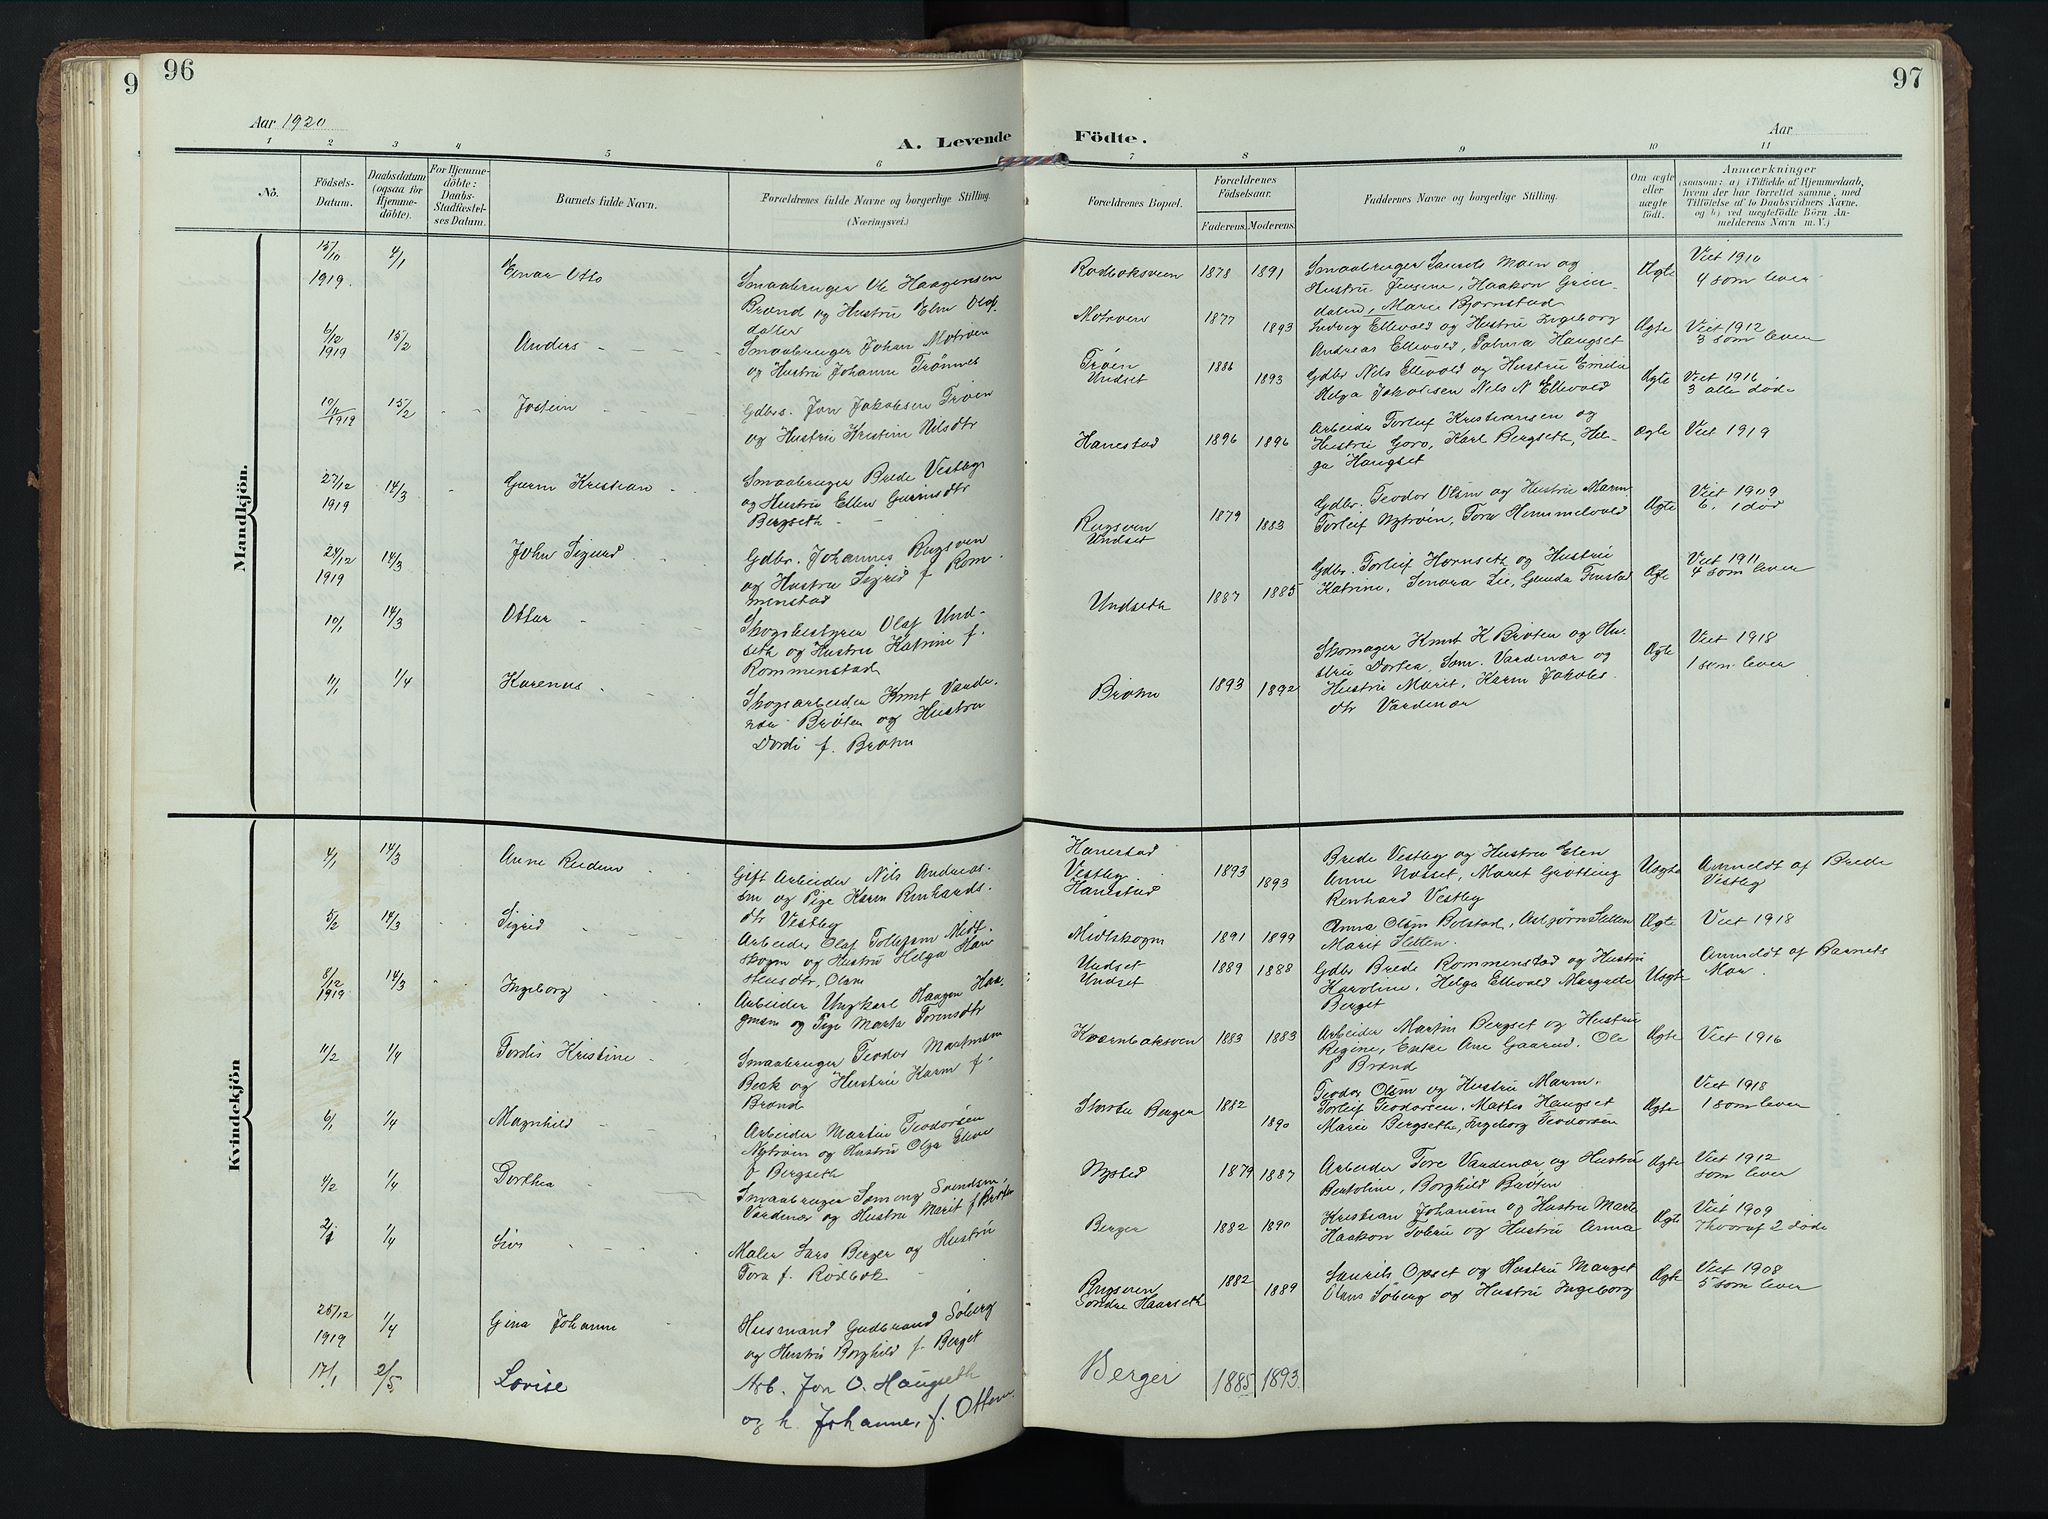 96
Aar 1920
A. Levende
1 2 3 4 5 6
No.
Födsels-Datum.
Daabsdatum (ogsaa for Hjemmedöbte).
For Hjemmedöbte: Daabs-Stadfæstelses Datum.
Barnets fulde Navn.
Forældrenes fulde Navne og borgerlige Stilling. (Næringsvei.)
Mandkjön.
15/10 1919. 4/1 Einar Otto
Smaabruger Ole Haagensen
Brænd og Hustru
6/12 1919 15/2 Anders
Smaabruger Johan Motrøen
og Hustru Johanne Trønnes
10/11 1919 15/2 Jostein
Gdbrs. Jon Jakobsen Trøen
og Hustru Kristine Nilsdtr
27/12 1919 14/3 Gurm Kristian
Smaabruger Brede Vestby
og Hustru Ellen
Bergseth
24/12 1919 14/3 John Sigurd
Gdbr. Johannes
og Hustru Sigrid f. Rom-
menstad
10/1 14/3 Ottar
Skogbestyrer Olaf Und-
seth og Hustru Katrine f.
Rommenstad
11/1 1/4 Karenus
Skogsarbeider Knut Varde-
nær Brøten og Hustru
Dordi f. Brøten
Kvindekjön
4/1 14/3 Anne
Gift Arbeider Nils Andreas-
sen og Pige Karen Renhards-
dtr Vestby
5/2 14/3 Sigrid
Arbeider Olaf Tollefsen Midt-
skogen og Hustru Helga Han
8/12 1919 14/3 Ingeborg
Arbeider Ungkarl Haagen Haa-
gensen og Pige Marte Torensdtr
11/2 1/4 Tordis Kristine
Smaabruger Teodor Martinsen
Bæk og Hustru Karen f.
Brænd
6/1 1/4 Magnhild
Arbeider Martin Teodorsen
Nytrøen og Hustru Olga
f Bergseth
4/2 1/4 Dorthea
Smaabruger Svendsen
Vardenær og Hustru Marit f Brøten
1/4 Siv
Maler Lars Berger og Hustru
Tora f. Rødbæk
25/12 1919 1/4 Gina Johanne
Husmand Gudbrand Søberg
og Hustru Borghild f. Berget
17/1 2/5 Lovise
Arb. Jon O. Haugseth
og h. Johanne, f. Otten
97
Födte.
Aar
7 8 9 10 11
Forældrenes Bopæl.
Forældrenes Födselsaar.
Faderens. Moderens.
Faddernes Navne og borgerlige Stilling.
Om ægte eller uægte födt.
Anmærkninger
(saasom: a) i Tilfælde af Hjemmedaab,
hvem der har forrettet samme, med
Tilföielse af to Daabsvidners Navne.
og b) ved uægtefödte Börn An-
melderens Navn m. V.)
Rødbæksveen 1878 1891
Smaabruger Laurits Moen og
Hustru Jensine, Haakon Grin-
dalen, Marie Bjørnstad
Ægte Viet 1910
4 som lever
Motrøen 1877 1893
Ludvig Ellevold og Hustru Ingeborg
Andreas Ellevold, Palma Haugset
Ægte Viet 1912
3 som lever
Trøen Undset 1886 1893
Gdbr Nils Ellevold og Hustru Emilie
Helga Jakobsen Nils N Ellevold
Ægte Viet 1916
3 alle døde
Hanestad 1896 1896
Arbeider Torleif Kristiansen og
Hustru Goro, Karl Bergseth, Hel-
ga Haugset
Ægte Viet 1919
Undset 1879 1883
Gdbr. Teodor Olsen og Hustru Maren
Torleif Nytrøen, Tora Himmelvold
Ægte Viet 1909
6. 1 død
Undseth 1887 1885
Gdbr. Torleif Hornseth og Hustru
Katrine, Senora Lie, Gunda Finstad
Ægte Viet 1911
4 som lever
Brøten 1893 1892
Skomager Knut K Brøten og Hu-
stru Dortea, Sem. Vardenær og
Hustru Marit, Karen Jakobs-
dtr Vardenær
Ægte Viet 1918
1 som lever
Hanestad
Vestby.
Hanestad
1893 1893
Brede Vestby og Hustru Elen
Anne Nosset, Marit Grøtting
Renhard Vestby
Uægte Anmeldt af Brede
Vestby
Midtskogen 1891 1899
Anna Olsen Bolstad, Asbjørn Sletten
Marit Sletten.
Ægte Viet 1918
Undset
Undset
1889 1888
Gdbr Brede Rommenstad og Hustru
Karoline, Helga Ellevold Margrete
Berget
Uægte Anmeldt af Barnets
Mor.
Kværnbæksveen 1883 1883
Arbeider Martin Bergset og Hustru
Regine, Enke Ane Gaarud. Ole
P Brænd
Ægte Viet 1916
Berger 1882 1890
Teodor Olsen og Hustru Maren.
Torleif Teodorsen. Mattis Haugset
Marie Bergseth, Ingeborg Teodorsen
Ægte Viet 1918
1 som lever
Nysted 1879 1887
Arbeider Tore Vardenær og Hustru
Bertoline, Borghild Brøten
Ægte Viet 1912
som lever
Berger 1882 1890
Kristian Johansen og Hustru Marte
Haakon og Hustru Anna
Ægte Viet 1909
7 hvoraf 2 døde
Søndre Haarseth
1882 1889
Laurits Opset og Hustru Marget
Olaus Søberg og Hustru Ingeborg
Ægte Viet 1908
5 som lever
Berger 1885 1893